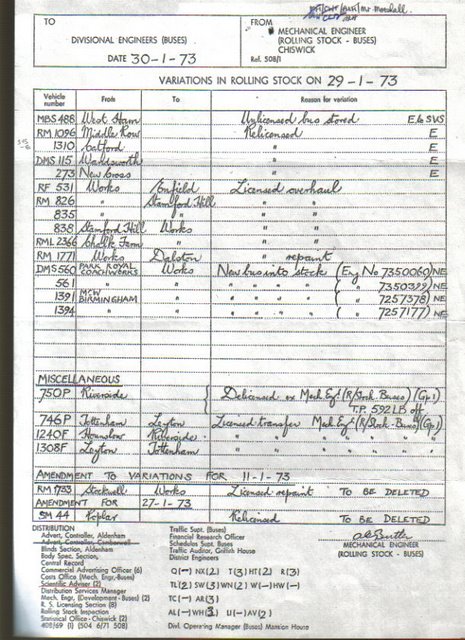 Mr Marshall.
TO
DIVISIONAL ENGINEERS (BUSES)
DATE 30-1-73
FROM
MECHANICAL ENGINEER
(ROLLING STOCK - BUSES)
CHISWICK
Ref. 508/1
VARIATIONS IN ROLLING STOCK ON 29-1-73
Vehicle number From To Reason for variation
MBS 488 West Ham Unlicensed bus stored E to SVS
RM 1096 Middle Row Relicensed E
1310 Catford " E
DMS 115 Wandsworth " E
273 New Cross " E
RF 531 Works Enfield Licensed overhaul
RM 826 " Stamford Hill " "
835 " " " "
838 Stamford Hill Works " "
RML 2366 Chalk Farm " " "
RM 1771 Works Dalston " repaint
DMS 560 PARK ROYAL COACHWORKS Works New bus into stock (Eng No 7350060) NE
561 " " " " " ( " " 7350399) NE
1391 MCW BIRMINGHAM " " " " " ( " " 7257378) NE
1394 " " " " " ( " " 7257177) NE
MISCELLANEOUS
750P Riverside Delicensed ex Mech Eng (R/Stock. Buses) (Gp 1)
T.P. 592LB off
746P Tottenham Leyton Licensed transfer Mech Eng (R/Stock-Buses) (Gp 1)
1240F Hounslow Riverside " " " " " "
1308F Leyton Tottenham " " " " " "
AMENDMENT TO VARIATIONS FOR 11-1-73
RM 1733 Stockwell Works Licensed repaint TO BE DELETED
AMENDMENT FOR 27-1-73
SM 44 Poplar Relicensed TO BE DELETED
DISTRIBUTION
Advert. Controller, Aldenham
Advert. Controller, Camberwell
Blinds Section, Aldenham
Body Spec. Section,
Central Record
Commercial Advertising Officer (6)
Costs Office (Mech. Engr.-Buses)
Scientific Adviser (2)
Distribution Services Manager
Mech. Engr. (Development - Buses) (2)
R. S. Licensing Section (8)
Rolling Stock Inspection
Statistical Office - Chiswick (2)
408/69 (1) (504 6/71 508)
Traffic Supt. (Buses)
Financial Research Officer
Schedules Supt. Buses
Traffic Auditor, Griffith House
District Engineers
Q(—) NX(2) T(3) HT(2) R(3)
TL(2) SW(3) WN(2) W(—) HW(—)
TC(—) AR(3)
AL(—) WH(3) U(—) AV(2)
Divl. Operating Manager (Buses) Mansion House
MECHANICAL ENGINEER
(ROLLING STOCK - BUSES)